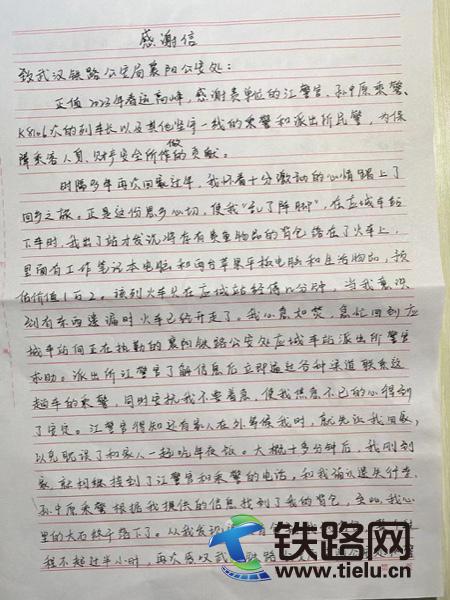 感谢信
致武汉铁路公安局襄阳公安处：
正值2023年春运高峰，感谢贵单位的江警官、孙中原乘警、
K8146次的列车长以及其他坚守一线的乘警和派出所民警，为保
障乘客人身、财产安全所做的贡献。
时隔多年再次回家过年，我怀着十分激动的心情踏上了
回乡之旅。正是这份思乡心切，使我"乱了阵脚"，在应城车站
下车时，我出了站才发现将存有贵重物品的背包落在了火车上，
里面有工作笔记本电脑和两台苹果平板电脑和生活物品，预
估价值1万2。该列火车只在应城站经停几分钟，当我意识
到有东西遗漏时火车已经开走了。我心急如焚，急忙回到应
城车站向正在执勤的襄阳铁路公安处应城车站派出所警官
求助。派出所江警官了解信息后立即通过各种渠道联系这
趟车的乘警，同时安抚我不要着急，使我焦急不已的心得到
了安定。江警官得知还有家人在外等候我时，就先让我回家，
以免耽误了和家人一起吃年夜饭。大概十多分钟后，我刚到
家，就相继接到了江警官和乘警的电话，和我确认遗失行李。
孙中原乘警根据我提供的信息找到了我的背包，至此，我心
里的大石终于落下了。从我发现
程不超过半小时，再次感谢武汉铁路
铁路网
www.tielu.cn